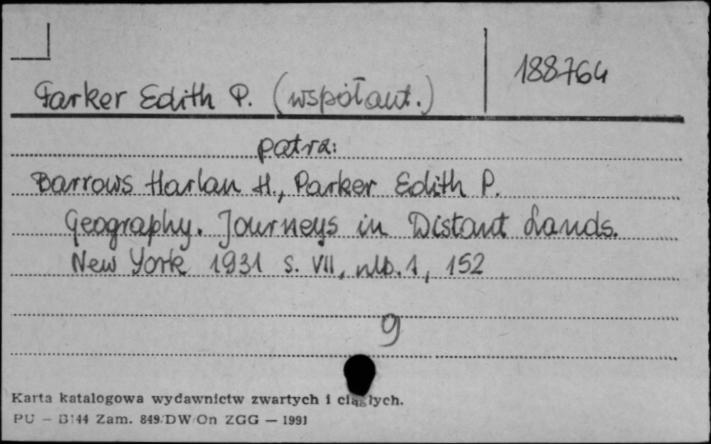 188764
Parker Edith P. (współaut.)
patrz:
Barrows Harlan H., Parker Edith P.
Geography. Journeys in Distant Lands.
New York 1931 s. VII, nlb. 1, 152
g
Karta katalogowa wydawnictw zwartych i ciągłych.
PU — B144 Zam. 849/DW/On ZGG — 1991